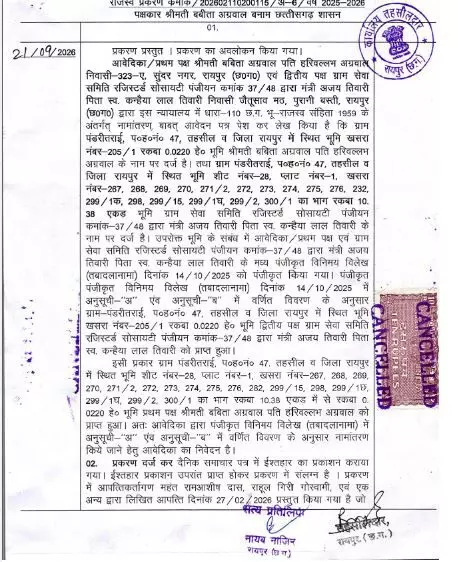 राजस्व प्रकरण क्रमांक / 202602110200115 / अ-6 / वर्ष 2025-2026
पक्षकार श्रीमती बबिता अग्रवाल बनाम छत्तीसगढ़ शासन
01.
21/09/2026
प्रकरण प्रस्तुत । प्रकरण का अवलोकन किया गया।
आवेदिका/प्रथम पक्ष श्रीमती बबिता अग्रवाल पति हरिवल्लभ अग्रवाल
निवासी-323-ए, सुंदर नगर, रायपुर (छ0ग0) एवं द्वितीय पक्ष ग्राम सेवा
समिति रजिस्टर्ड सोसायटी पंजीयन कमांक 37/48 द्वारा मंत्री अजय तिवारी
पिता स्व. कन्हैया लाल तिवारी निवासी जैतूसाव मठ, पुरानी बस्ती, रायपुर
(छ0ग0) द्वारा इस न्यायालय में धारा-110 छ.ग. भू-राजस्व संहिता 1959 के
अंतर्गत नामांतरण बाबत् आवेदन पत्र पेश कर लेख किया है कि ग्राम
पंडरीतराई, प0ह0नं0 47, तहसील व जिला रायपुर में स्थित भूमि खसरा
नंबर-205/1 रकबा 0.0220 हे0 भूमि श्रीमती बबिता अग्रवाल पति हरिवल्लभ
अग्रवाल के नाम पर दर्ज है। तथा ग्राम पंडरीतराई, प0ह0नं0 47, तहसील व
जिला रायपुर में स्थित भूमि शीट नंबर-28, प्लाट नंबर-1, खसरा
नंबर-267, 268, 269, 270, 271/2, 272, 273, 274, 275, 276, 232,
299/1क, 298, 299/15, 299/1घ, 299/2, 300/1 का भाग रकबा 10.
38 एकड़ भूमि ग्राम सेवा समिति रजिस्टर्ड सोसायटी पंजीयन
कमांक-37/48 द्वारा मंत्री अजय तिवारी पिता स्व. कन्हैया लाल तिवारी के
नाम पर दर्ज है। उपरोक्त भूमि के संबंध में आवेदिका/प्रथम पक्ष एवं ग्राम
सेवा समिति रजिस्टर्ड सोसायटी पंजीयन कमांक-37/48 द्वारा मंत्री अजय
तिवारी पिता स्व. कन्हैया लाल तिवारी के मध्य पंजीकृत विनिमय विलेख
(तबादलानामा) दिनांक 14/10/2025 को पंजीकृत किया गया। पंजीकृत
पंजीकृत विनिमय विलेख (तबादलानामा) दिनांक 14/10/2025 में
अनुसूची-"अ" एंव अनुसूची-"ब" में वर्णित विवरण के अनुसार
ग्राम-पंडरीतराई, प0ह0नं0 47, तहसील व जिला रायपुर में स्थित भूमि
खसरा नंबर-205/1 रकबा 0.0220 हे0 भूमि द्वितीय पक्ष ग्राम सेवा समिति
रजिस्टर्ड सोसायटी पंजीयन कमांक-37/48 द्वारा मंत्री अजय तिवारी पिता
स्व. कन्हैया लाल तिवारी को प्राप्त हुआ।
इसी प्रकार ग्राम पंडरीतराई, प0ह0नं0 47, तहसील व जिला रायपुर
में स्थित भूमि शीट नंबर-28, प्लाट नंबर-1, खसरा नंबर-267, 268, 269,
270, 271/2, 272, 273, 274, 275, 276, 282, 299/15, 298, 299/1छ,
299/1घ, 299/2, 300/1 का भाग रकबा 10.38 एकड़ में से रकबा 0.
0220 हे0 भूमि प्रथम पक्ष श्रीमती बबिता अग्रवाल पति हरिवल्लभ अग्रवाल को
प्राप्त हुआ। अतः आवेदिका द्वारा पंजीकृत विनिमय विलेख (तबादलानामा) में
अनुसूची-"अ" एंव अनुसूची-"ब" में वर्णित विवरण के अनुसार नामांतरण
किये जाने हेतु आवेदिका का निवेदन है।
02. प्रकरण दर्ज कर दैनिक समाचार पत्र में ईश्तहार का प्रकाशन कराया
गया। ईश्तहार प्रकाशन उपरांत प्राप्त होकर प्रकरण में संलग्न है । प्रकरण
में आपत्तिकर्तागण महंत रामआशीष दास, राहुल गिरी गोस्वामी, एवं एक
अन्य द्वारा लिखित आपत्ति दिनांक 27/02/2026 प्रस्तुत किया गया है जो
सत्य प्रतिलिपि
नायब नाजिर
रायपुर (छ.ग.)
तहसीलदार,
रायपुर (छ.ग.)
कार्यालय तहसीलदार
रायपुर (छ.ग.)
CANCELLED
CANCELLED